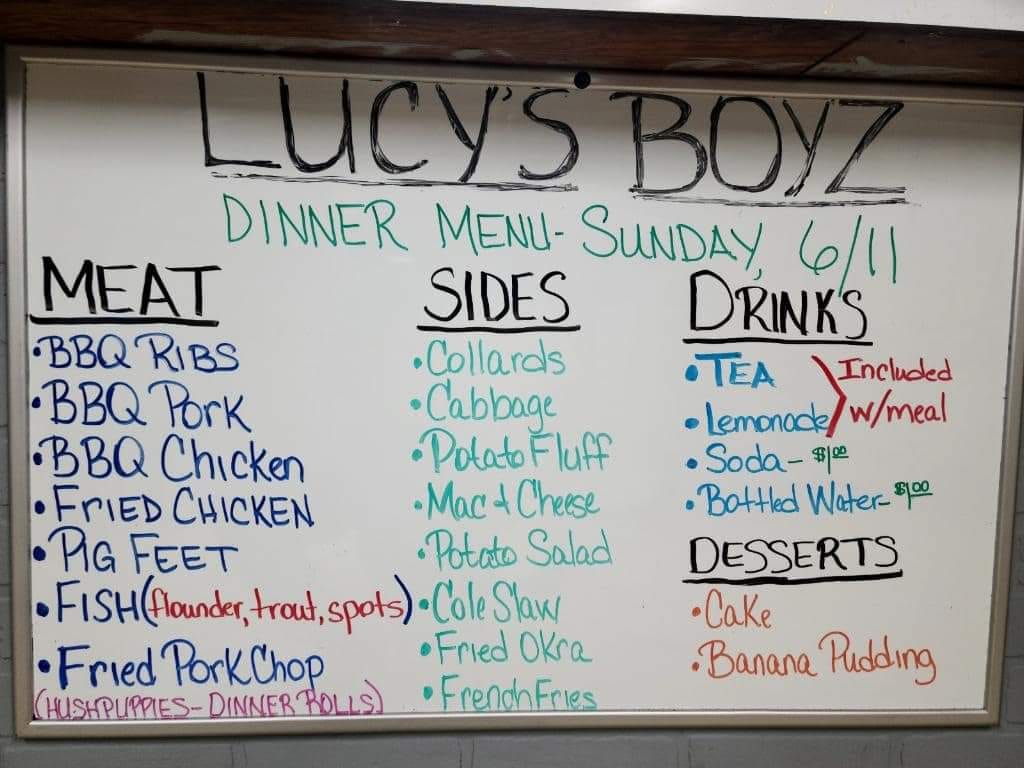 LUCY'S BOYZ
DINNER MENU- SUNDAY, 6/11
MEAT
•BBQ RIBS
•BBQ Pork
•BBQ Chicken
•FRIED CHICKEN
•PIG FEET
•FISH (flounder, trout, spots)
•Fried Pork Chop
(HUSHPUPPIES- DINNER ROLLS)
SIDES
•Collards
•Cabbage
•Potato Fluff
•Mac & Cheese
•Potato Salad
•Cole Slaw
•Fried Okra
•French Fries
DRINKS
•TEA
•Lemonade
Included
w/meal
•Soda- $1.00
•Bottled Water- $1.00
DESSERTS
•Cake
•Banana Pudding